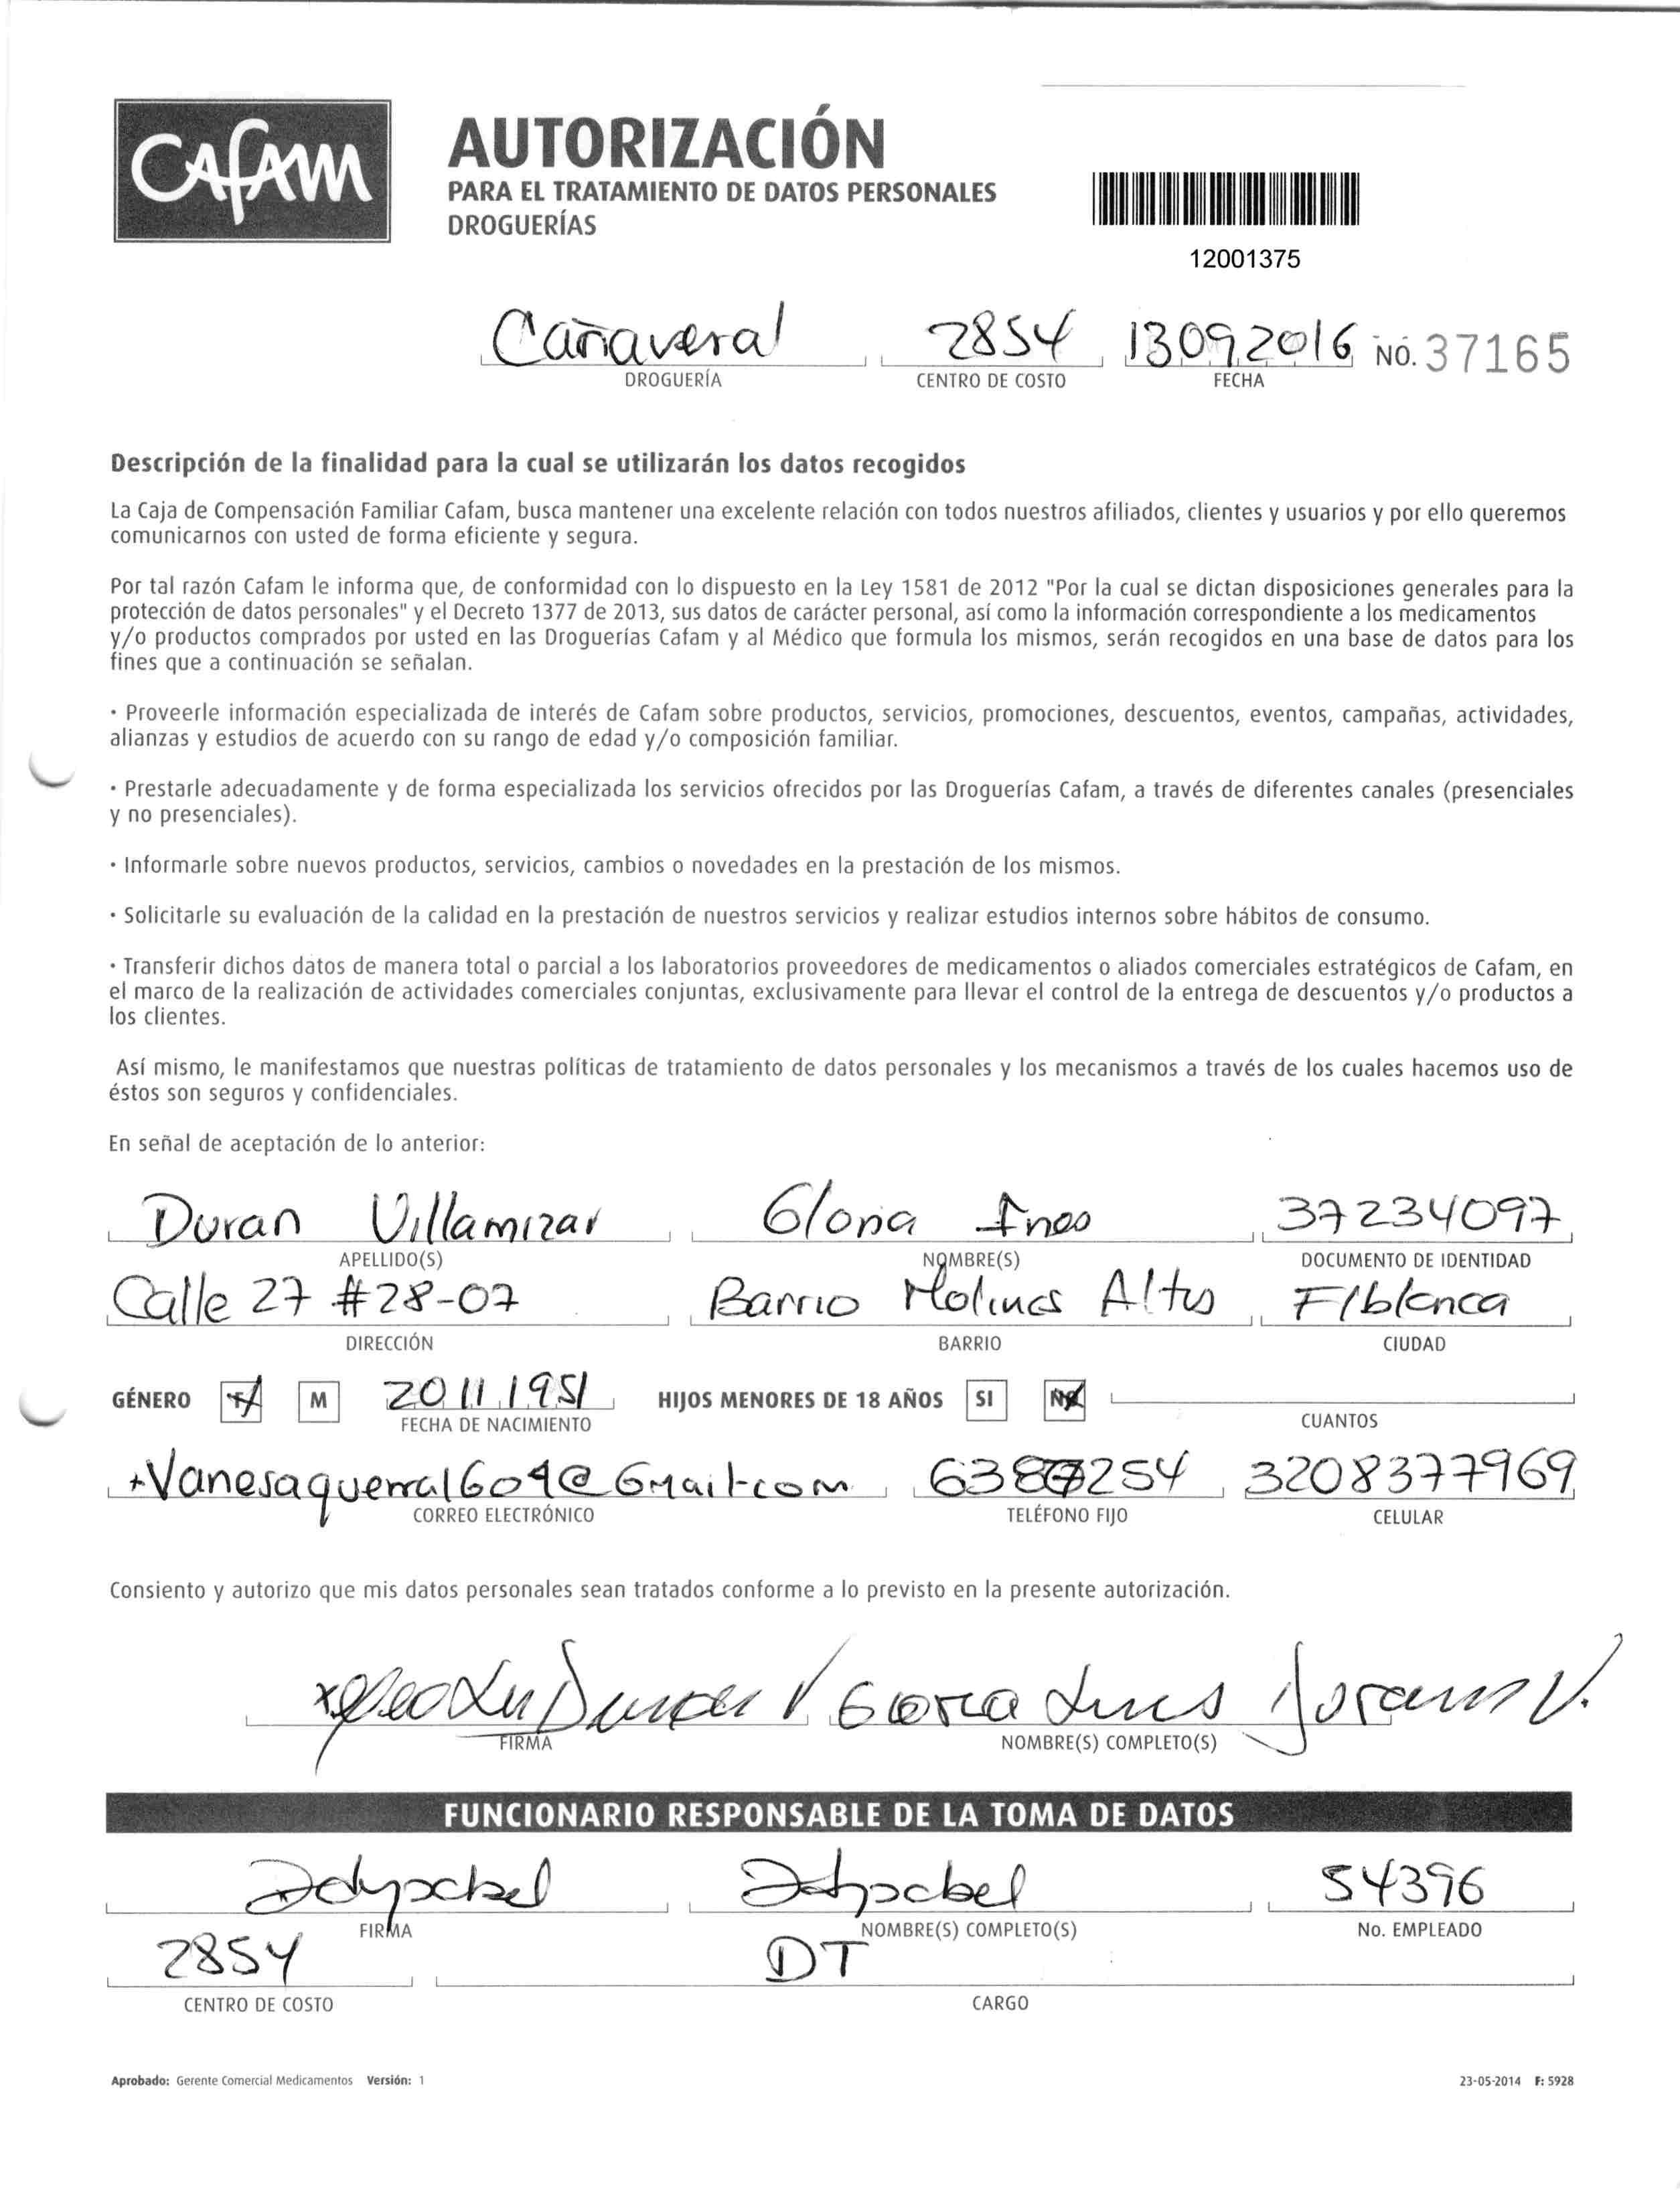 CAFAM
AUTORIZACIÓN
PARA EL TRATAMIENTO DE DATOS PERSONALES
DROGUERÍAS
12001375
Cañaveral 2854 13092016 NO. 37165
DROGUERÍA CENTRO DE COSTO FECHA
Descripción de la finalidad para la cual se utilizarán los datos recogidos
La Caja de Compensación Familiar Cafam, busca mantener una excelente relación con todos nuestros afiliados, clientes y usuarios y por ello queremos
comunicarnos con usted de forma eficiente y segura.
Por tal razón Cafam le informa que, de conformidad con lo dispuesto en la Ley 1581 de 2012 "Por la cual se dictan disposiciones generales para la
protección de datos personales" y el Decreto 1377 de 2013, sus datos de carácter personal, así como la información correspondiente a los medicamentos
y/o productos comprados por usted en las Droguerías Cafam y al Médico que formula los mismos, serán recogidos en una base de datos para los
fines que a continuación se señalan.
· Proveerle información especializada de interés de Cafam sobre productos, servicios, promociones, descuentos, eventos, campañas, actividades,
alianzas y estudios de acuerdo con su rango de edad y/o composición familiar.
· Prestarle adecuadamente y de forma especializada los servicios ofrecidos por las Droguerías Cafam, a través de diferentes canales (presenciales
y no presenciales).
· Informarle sobre nuevos productos, servicios, cambios o novedades en la prestación de los mismos.
· Solicitarle su evaluación de la calidad en la prestación de nuestros servicios y realizar estudios internos sobre hábitos de consumo.
· Transferir dichos datos de manera total o parcial a los laboratorios proveedores de medicamentos o aliados comerciales estratégicos de Cafam, en
el marco de la realización de actividades comerciales conjuntas, exclusivamente para llevar el control de la entrega de descuentos y/o productos a
los clientes.
Así mismo, le manifestamos que nuestras políticas de tratamiento de datos personales y los mecanismos a través de los cuales hacemos uso de
éstos son seguros y confidenciales.
En señal de aceptación de lo anterior:
Duran Villamizar Gloria Ines 37234097
APELLIDO(S) NOMBRE(S) DOCUMENTO DE IDENTIDAD
Calle 27 #28-07 Barrio Molinos Altos F/blanca
DIRECCIÓN BARRIO CIUDAD
GÉNERO F M 20111951 HIJOS MENORES DE 18 AÑOS SI NO
FECHA DE NACIMIENTO CUANTOS
638 254 3208377969
CORREO ELECTRÓNICO TELÉFONO FIJO CELULAR
Consiento y autorizo que mis datos personales sean tratados conforme a lo previsto en la presente autorización.
Duran V Gloria Ines Duran V.
FIRMA NOMBRE(S) COMPLETO(S)
FUNCIONARIO RESPONSABLE DE LA TOMA DE DATOS
54396
FIRMA NOMBRE(S) COMPLETO(S) No. EMPLEADO
2854 DT
CENTRO DE COSTO CARGO
Aprobado: Gerente Comercial Medicamentos Versión: 1 23-05-2014 F: 5928